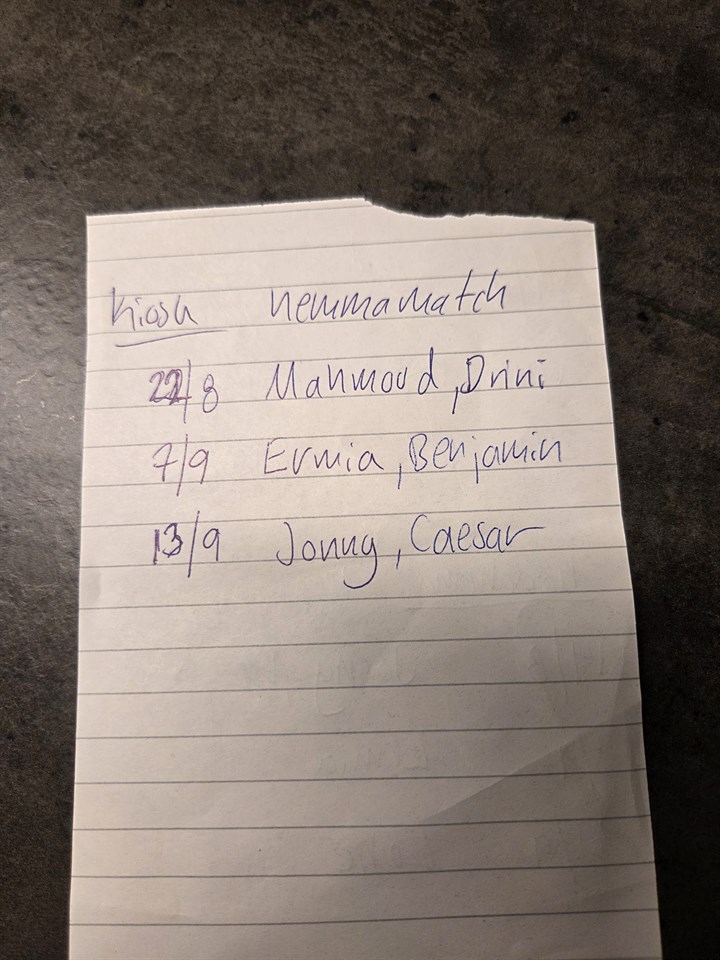 Kiosk hemmamatch
22/8 Mahmoud, Drini
7/9 Ermia, Benjamin
13/9 Jonny, Caesar